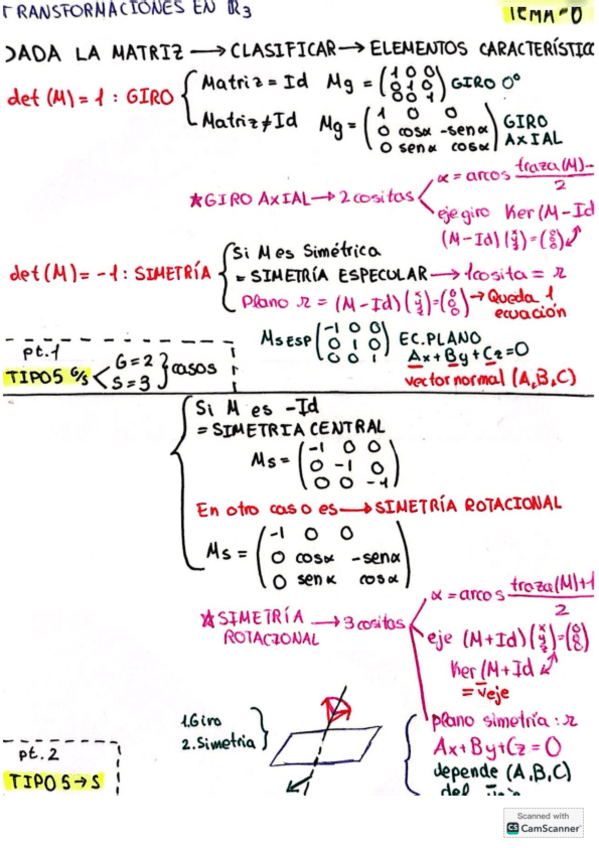 TRANSFORMACIONES EN R3
TEMA-0
DADA LA MATRIZ → CLASIFICAR → ELEMENTOS CARACTERÍSTICO
det (M) = 1 : GIRO
Matriz = Id Mg = (1 0 0
0 1 0
0 0 1) GIRO 0°
Matriz ≠ Id Mg = (1 0 0
0 cosα -senα
0 senα cosα) GIRO AXIAL
★GIRO AXIAL → 2 cositas
α = arcos traza(M)-
2
eje giro Ker (M-Id
(M-Id) (x y z) = (0 0 0)
det (M) = -1 : SIMETRÍA
Si M es Simétrica
= SIMETRÍA ESPECULAR → 1 cosita = π
Plano π = (M-Id) (x y z) = (0 0 0) → Queda 1 ecuación
Msesp (-1 0 0
0 1 0
0 0 1)
EC. PLANO
Ax+By+Cz=0
vector normal (A,B,C)
pt.1
TIPOS G/S
G=2
S=3
casos
Si M es -Id
= SIMETRIA CENTRAL
Ms = (-1 0 0
0 -1 0
0 0 -1)
En otro caso es → SIMETRÍA ROTACIONAL
Ms = (-1 0 0
0 cosα -senα
0 senα cosα)
★SIMETRÍA ROTACIONAL → 3 cositas
α = arcos traza(M)+1
2
eje (M+Id) (x y z) = (0 0 0)
Ker (M+Id
= v̄eje
1. Giro
2. Simetria
plano simetría : π
Ax+By+Cz=0
depende (A,B,C)
del
pt. 2
TIPOS → S
Scanned with
CS CamScanner